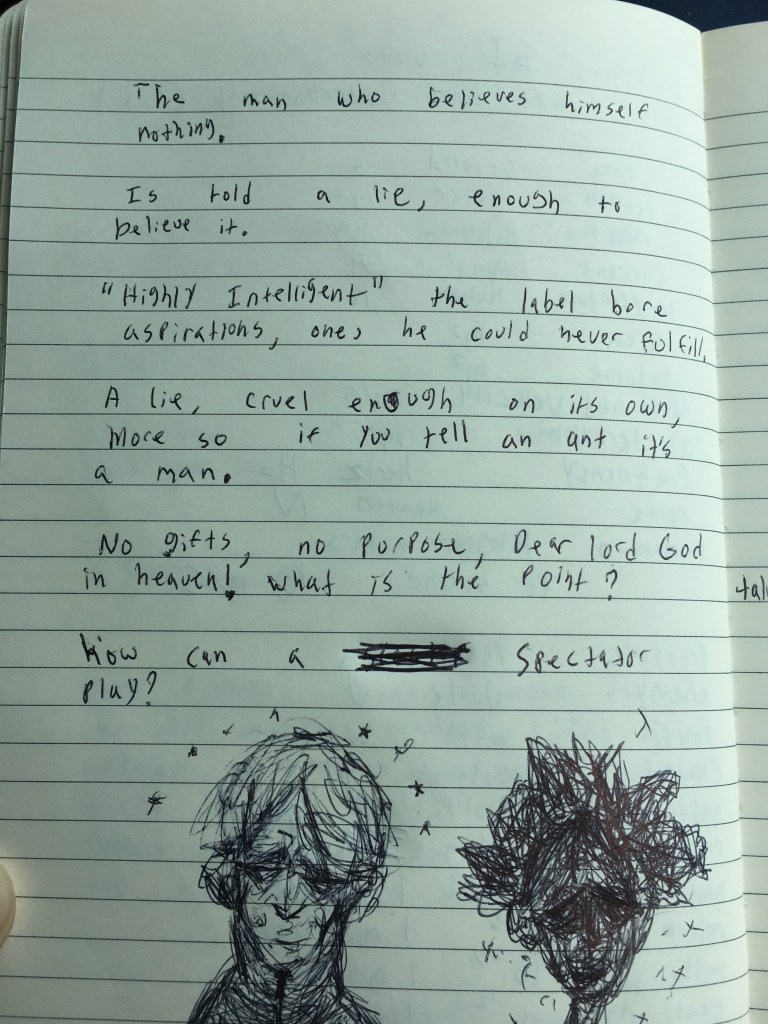 The man who believes himself
nothing.
Is told a lie, enough to
believe it.
"Highly Intelligent" the label bore
aspirations, ones he could never fulfill.
A lie, cruel enough on its own,
More so if you tell an ant it's
a man.
No gifts, no purpose, Dear lord God
in heaven! what is the point?
How can a Spectator
play?